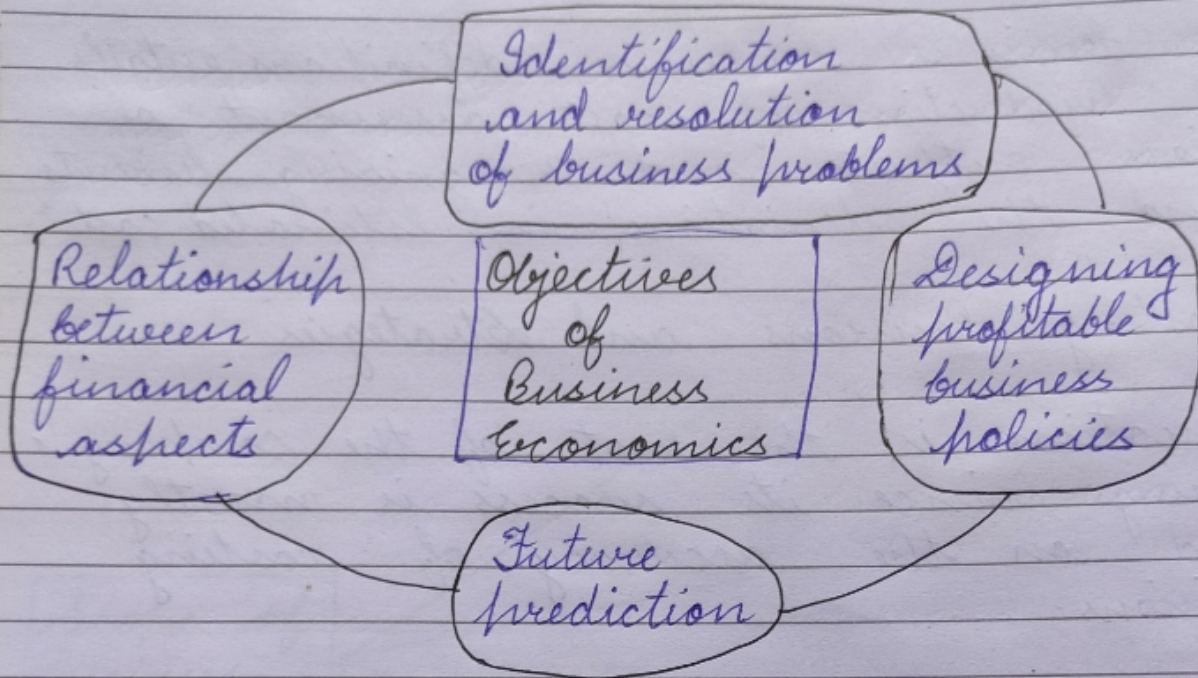 Identification
and resolution
of business problems
Relationship
between
financial
aspects
Objectives
of
Business
Economics
Designing
profitable
business
policies
Future
prediction